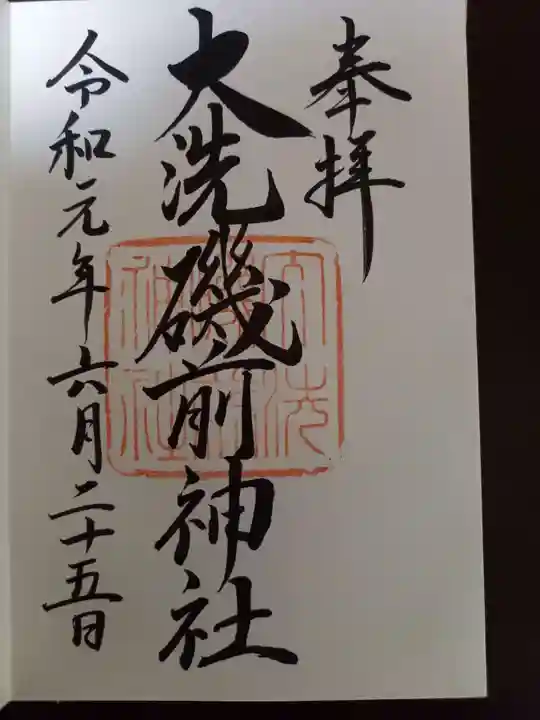 奉拝
大洗磯前神社
令和元年六月二十五日
大洗
磯前
神社